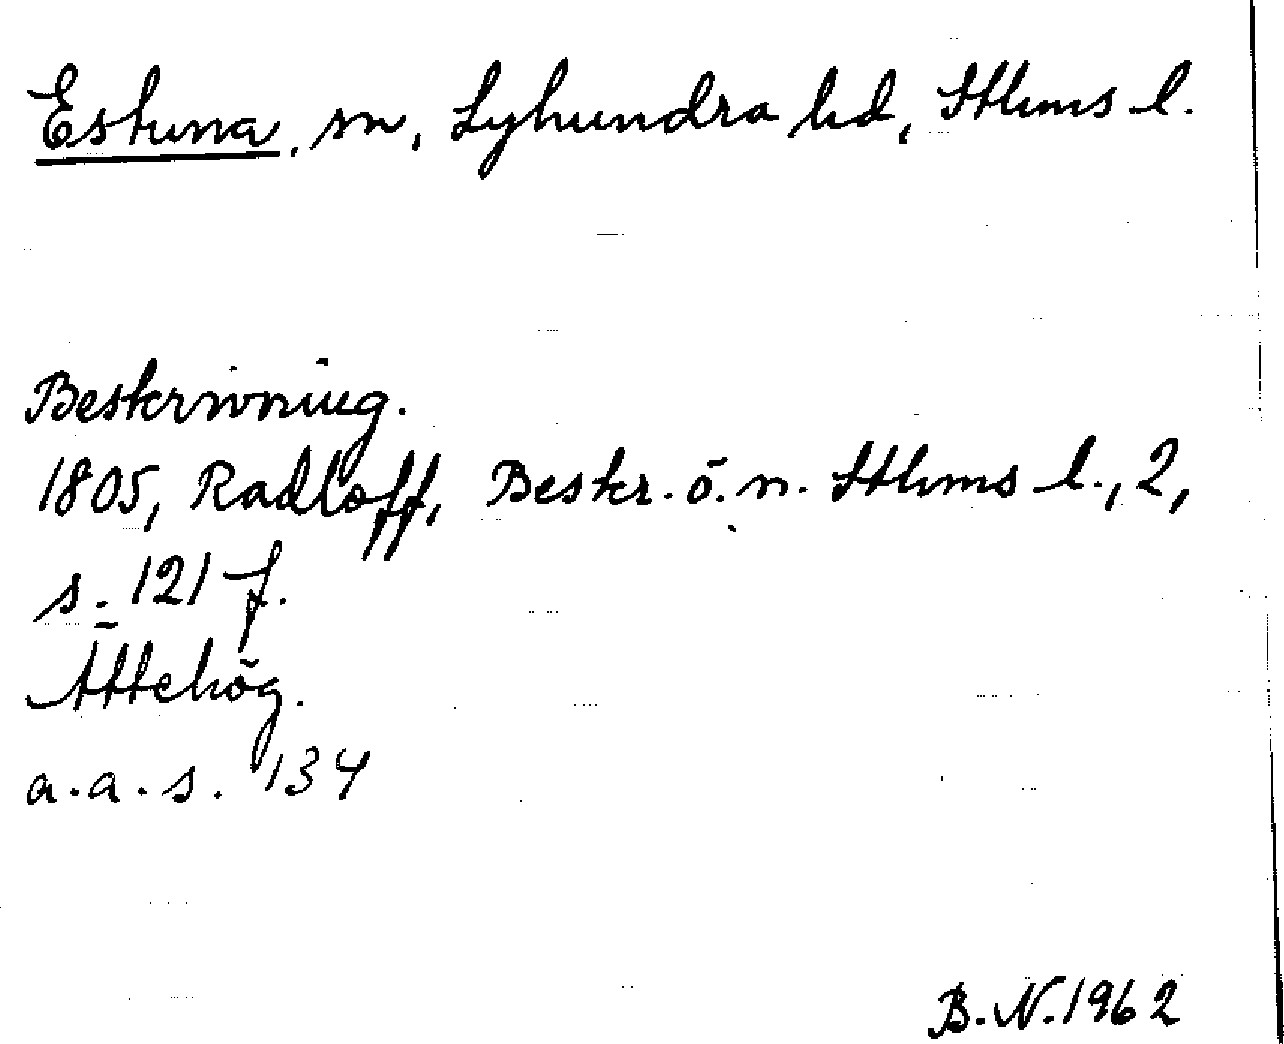 Estuna, sn, Lyhundra hd, Sthms l.
Beskrivning.
1805, Radloff, Beskr. ö. n. Sthms l., 2,
s. 121 f.
Ättehög.
a.a.s. 134
B.N. 1962